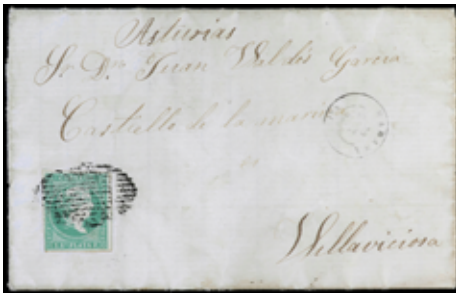 Asturias
Sr. Dn. Juan Valdés Garcia
Castiello de la marina
Villaviciosa